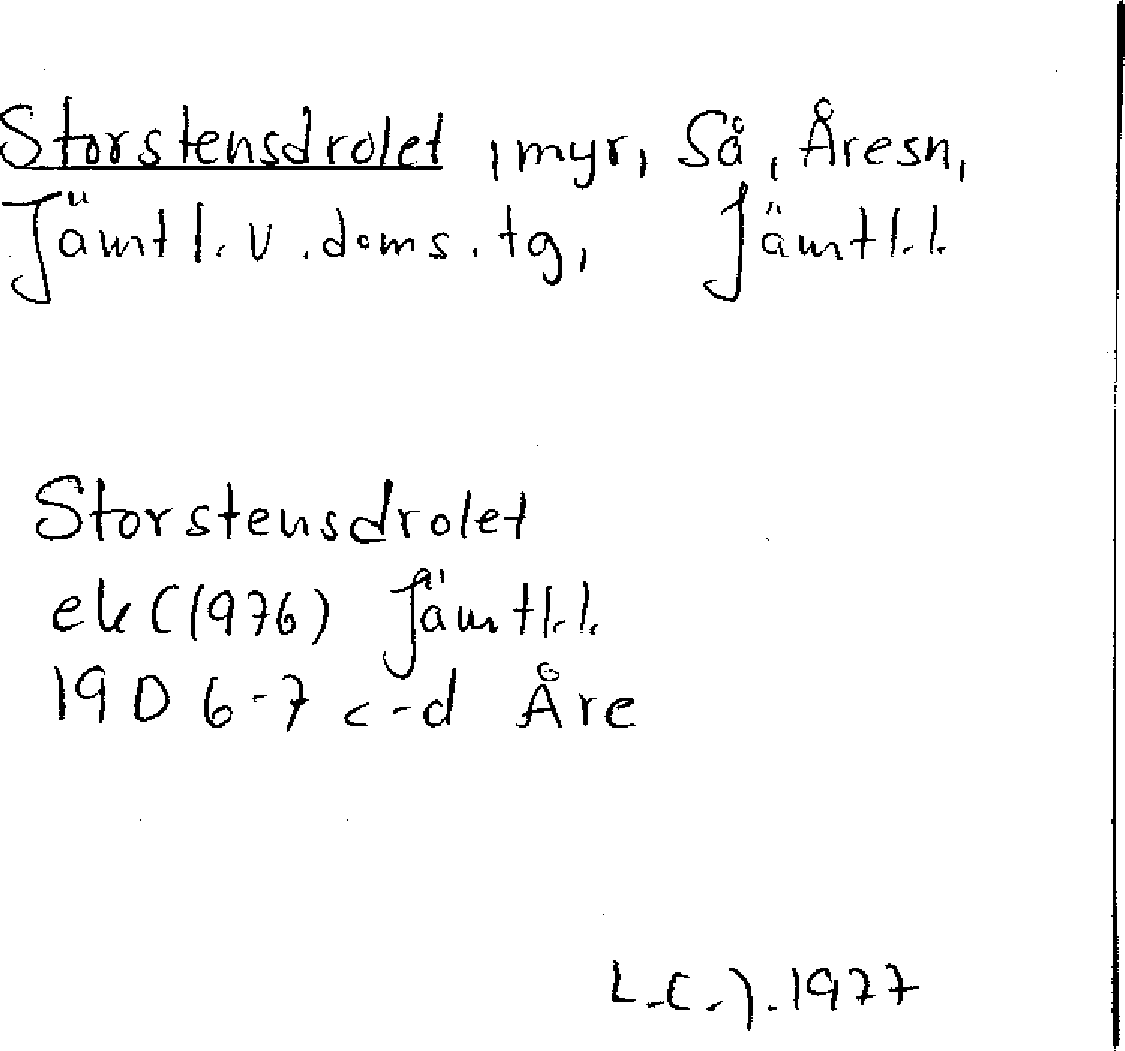 Storstensdrolet, myr, Så, Åresn,
Jämtl. v. doms. tg, Jämtl. l.
Storstensdrolet
ek (1976) Jämtl. l.
19 D 6-7 c-d Åre
L.C.J. 1977